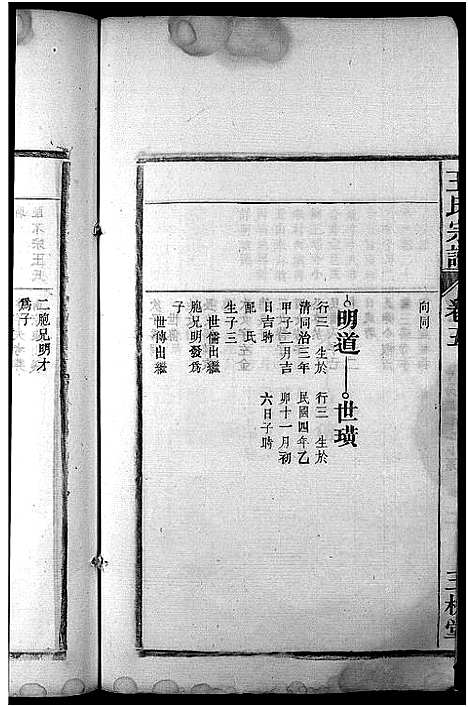 王氏宗譜 卷五
三槐堂
向同
明道 世璜
行三 生於 行三 生於
清同治三年 民國四年乙
甲子二月吉 卯十一月初
日吉時 六日子時
配 氏
生子三
世儒出繼
胞兄明發爲
子
世傳出繼
二胞兄明才
爲子